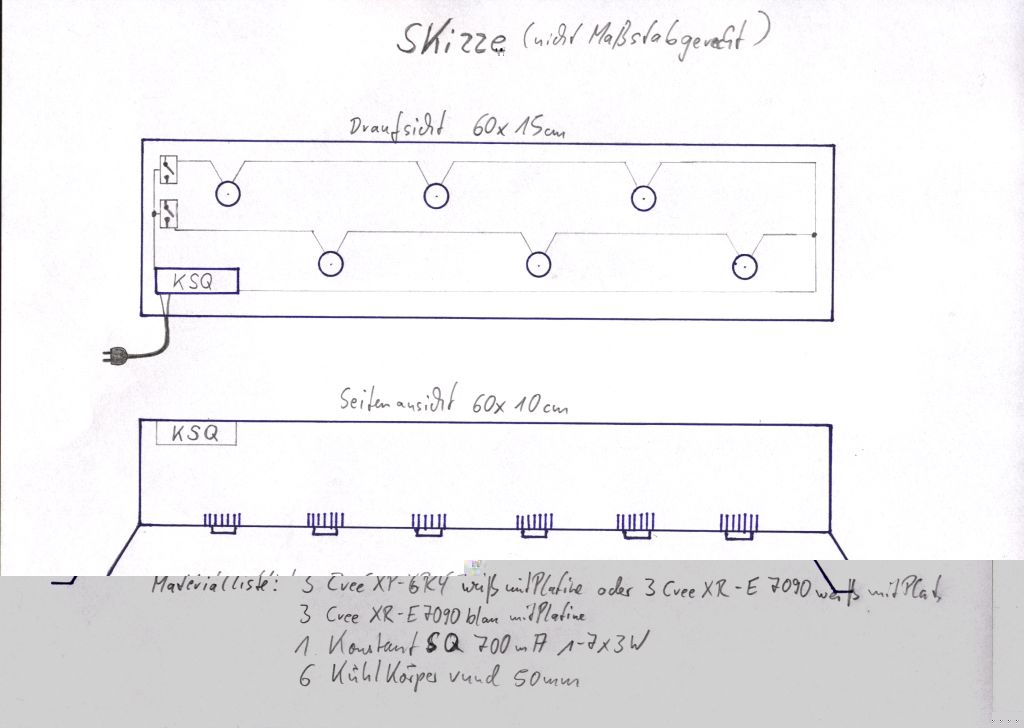 Skizze (nicht Maßstabgerecht)
Draufsicht 60x15cm
KSQ
Seitenansicht 60x10cm
KSQ
Materialliste: 3 Cree weiß mit Platine oder 3 Cree XR-E 7090 weiß mit
3 Cree XR-E 7090 blau mit Platine
1 Konstant SQ 700mA 1-7x3W
6 Kühlkörper rund 50mm